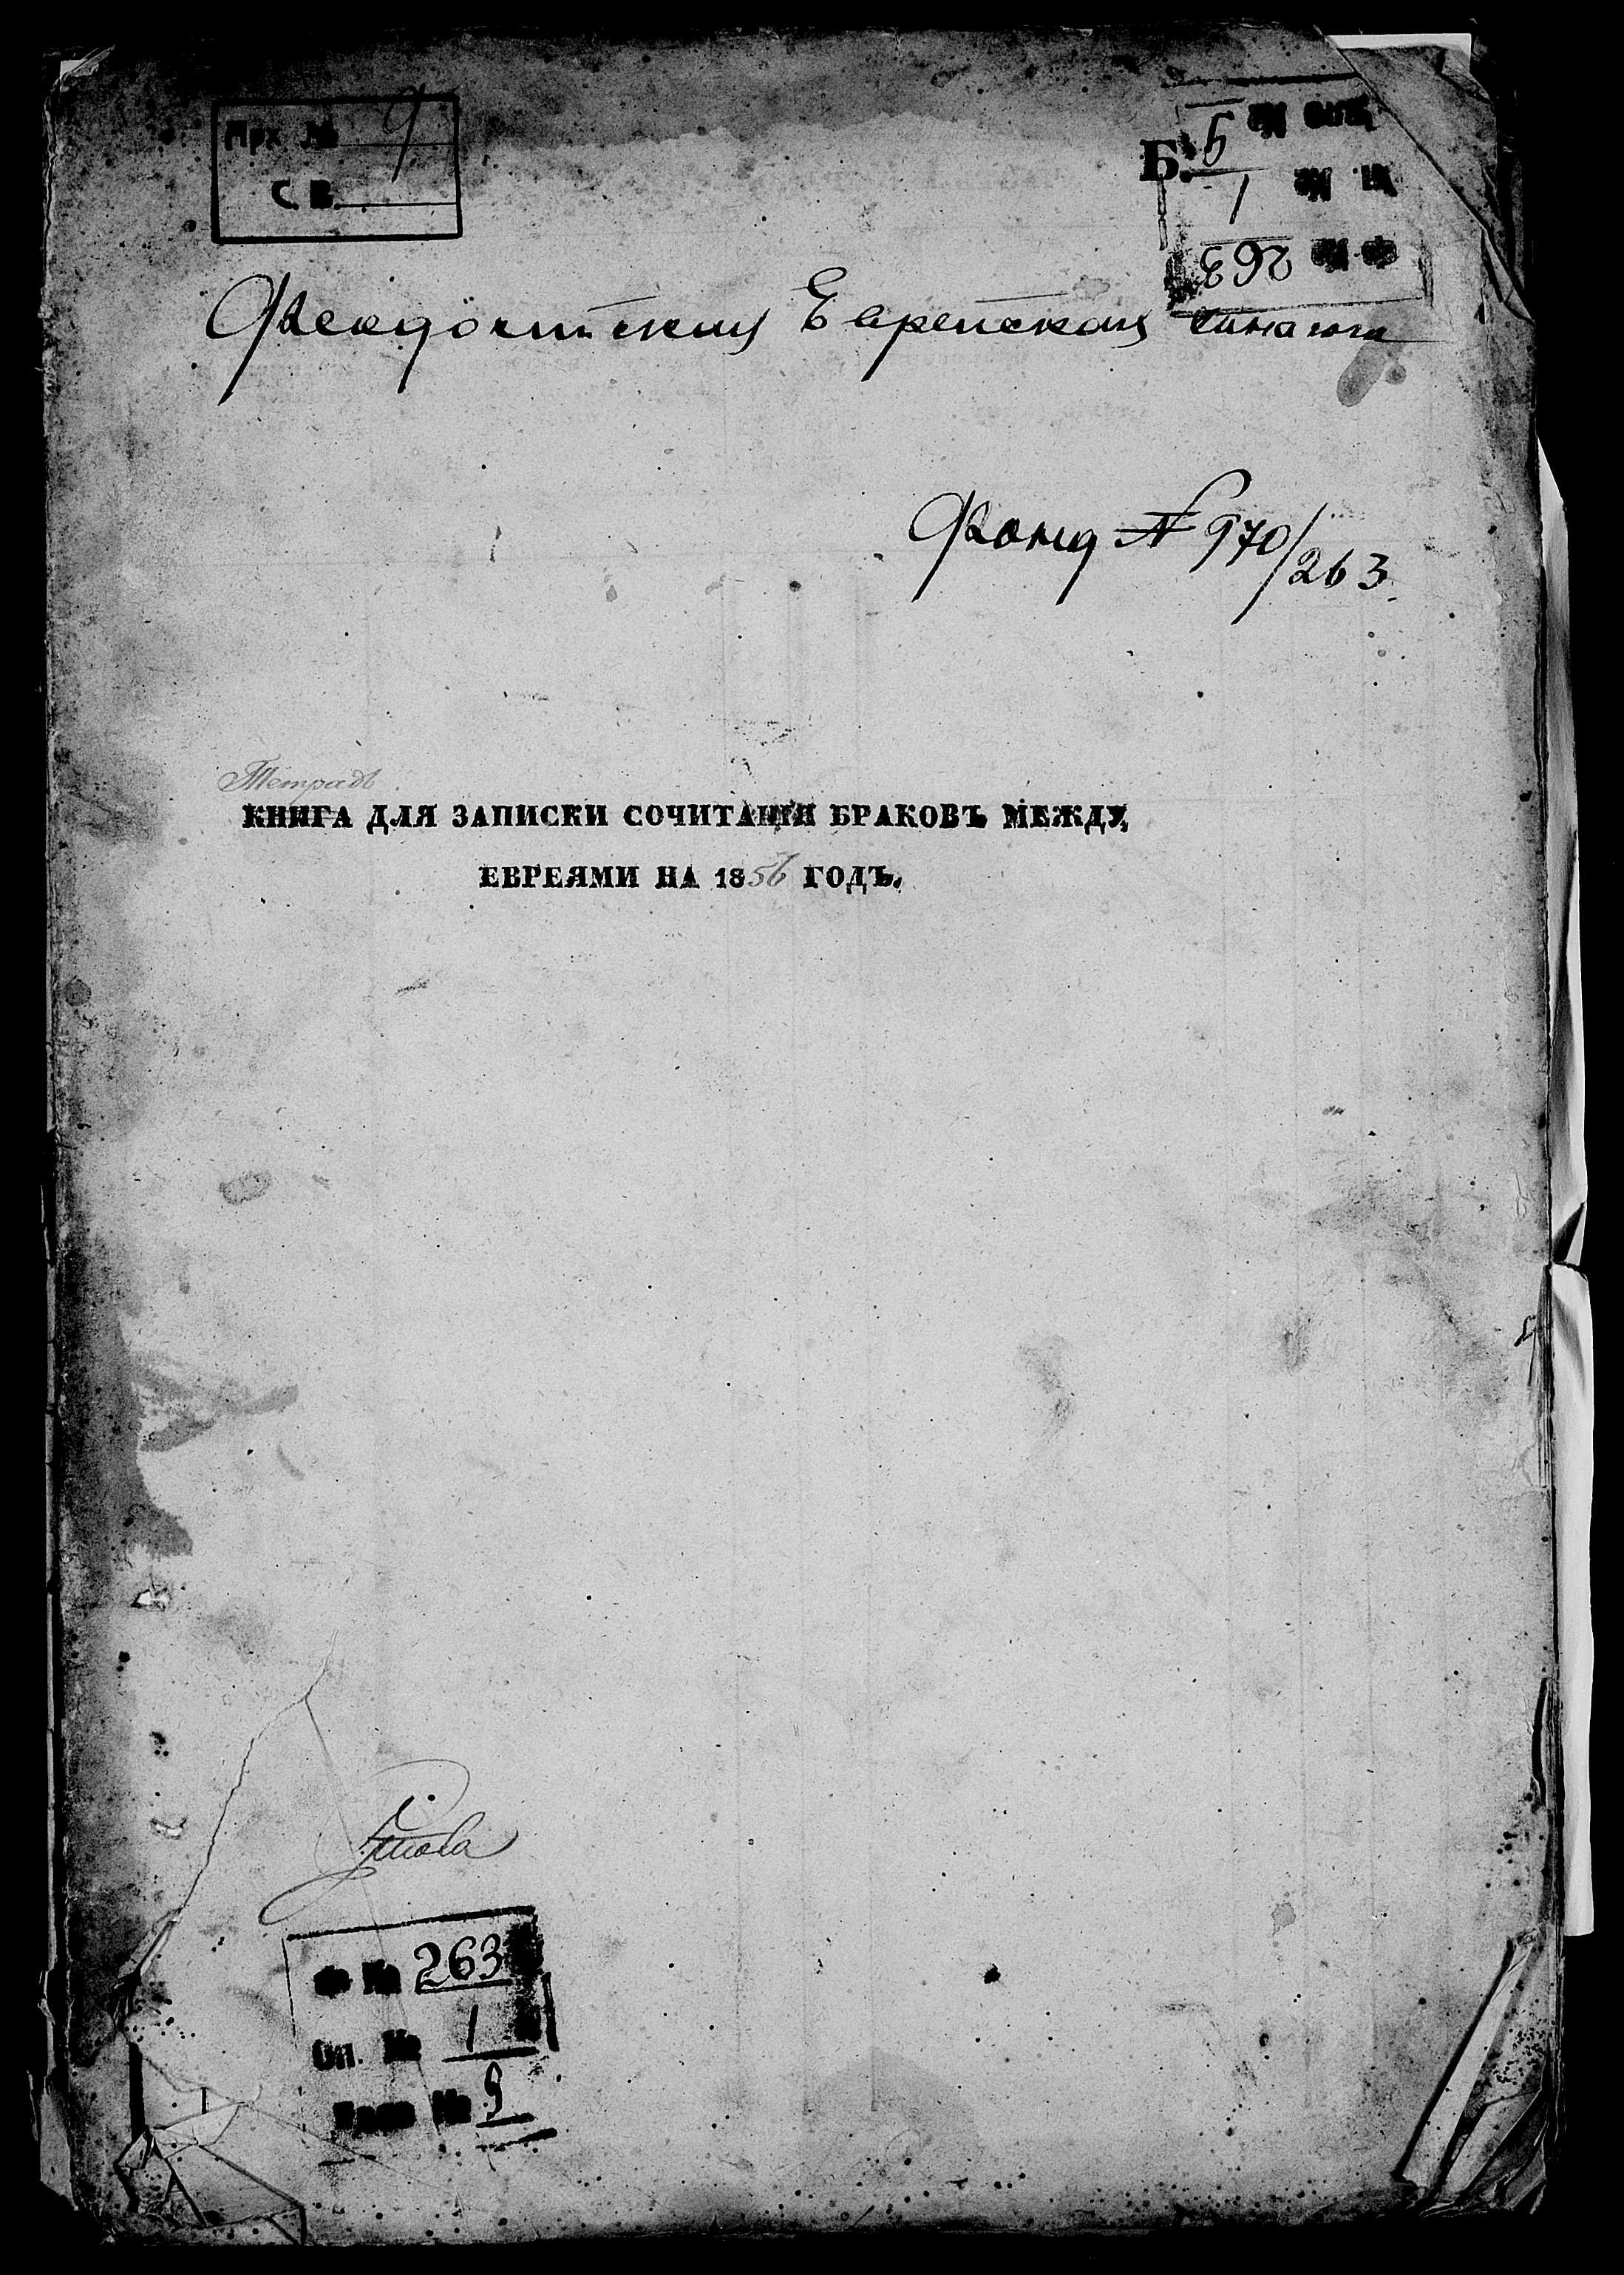 Арх. № 9
С. В.
Б.
Дело № 9
Оп. № 1
Ф № 263
Феодосийская Еврейская синагога
Фонд № 970/263.
Тетрадь
КНИГА ДЛЯ ЗАПИСКИ СОЧИТАНІЯ БРАКОВЪ МЕЖДУ
ЕВРЕЯМИ НА 1856 ГОДЪ.
Ф № 263
Оп. № 1
Дело № 9